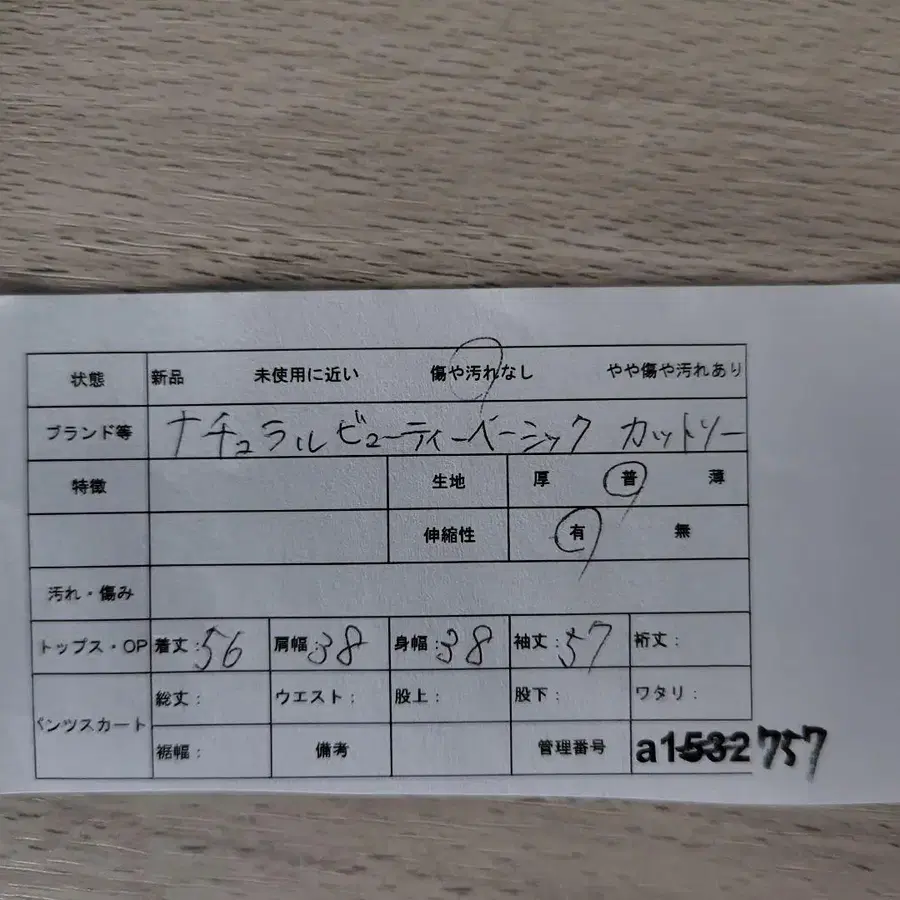 状態 新品 未使用に近い 傷や汚れなし やや傷や汚れあり
ブランド等 ナチュラルビューティーベーシック カットソー
特徴 生地 厚 普 薄
伸縮性 有 無
汚れ・傷み
トップス・OP 着丈:56 肩幅:38 身幅:38 袖丈:57 裄丈:
パンツスカート 総丈: ウエスト: 股上: 股下: ワタリ:
裾幅: 備考 管理番号 a1532757